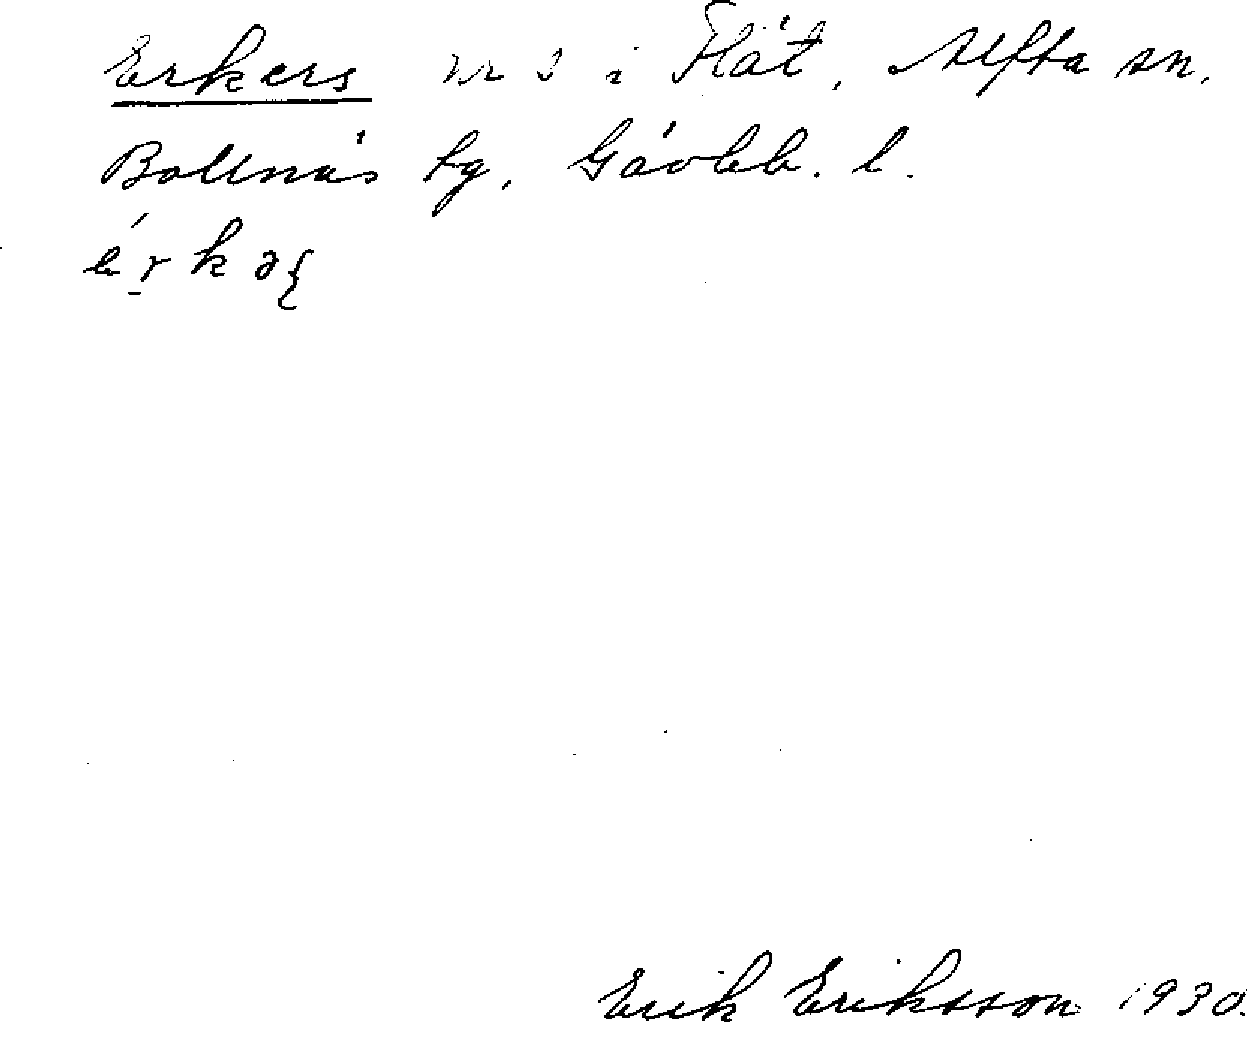 Erkers nr 3 i Flät, Alfta sn.
Bollnäs tg, Gävleb. l.
érkəʃ
Erik Eriksson 1930.